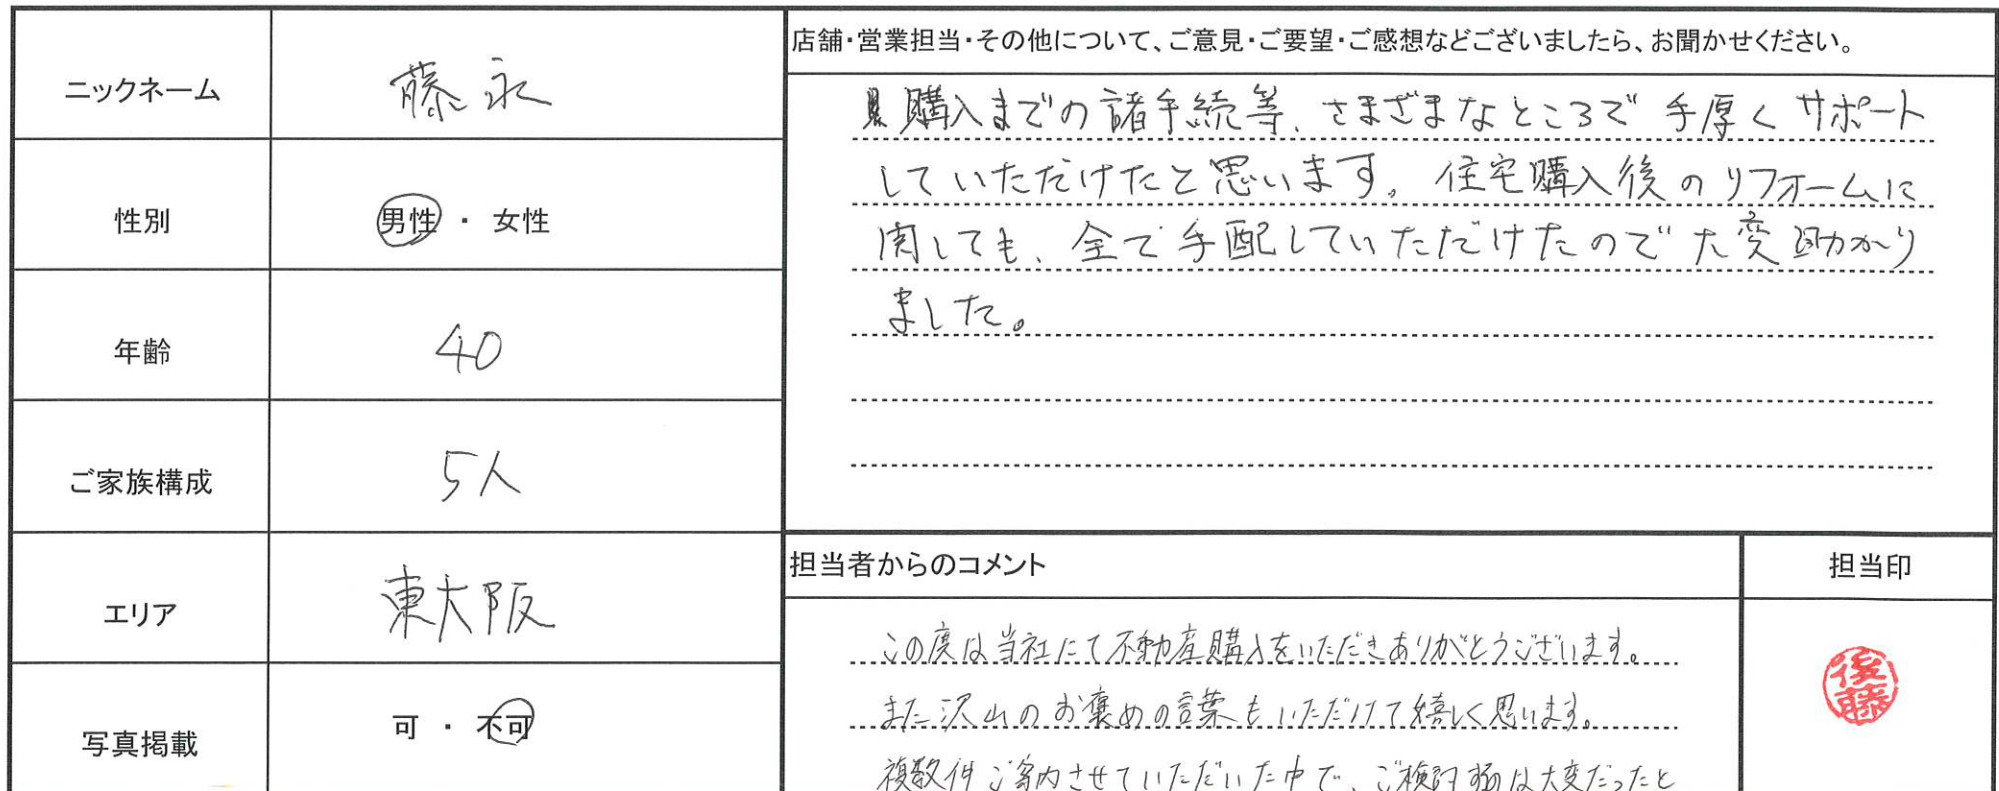 ニックネーム
藤永
性別
男性 ・ 女性
年齢
40
ご家族構成
5人
エリア
東大阪
写真掲載
可 ・ 不可
店舗・営業担当・その他について、ご意見・ご要望・ご感想などございましたら、お聞かせください。
購入までの諸手続等、さまざまなところで手厚くサポート
していただけたと思います。住宅購入後のリフォームに
関しても、全て手配していただけたので大変助かり
ました。
担当者からのコメント
この度は当社にて不動産購入をいただきありがとうございます。
また沢山のお褒めの言葉もいただけて嬉しく思います。
複数件ご案内させていただいた中で、ご検討する事は大変だったと
担当印
後藤